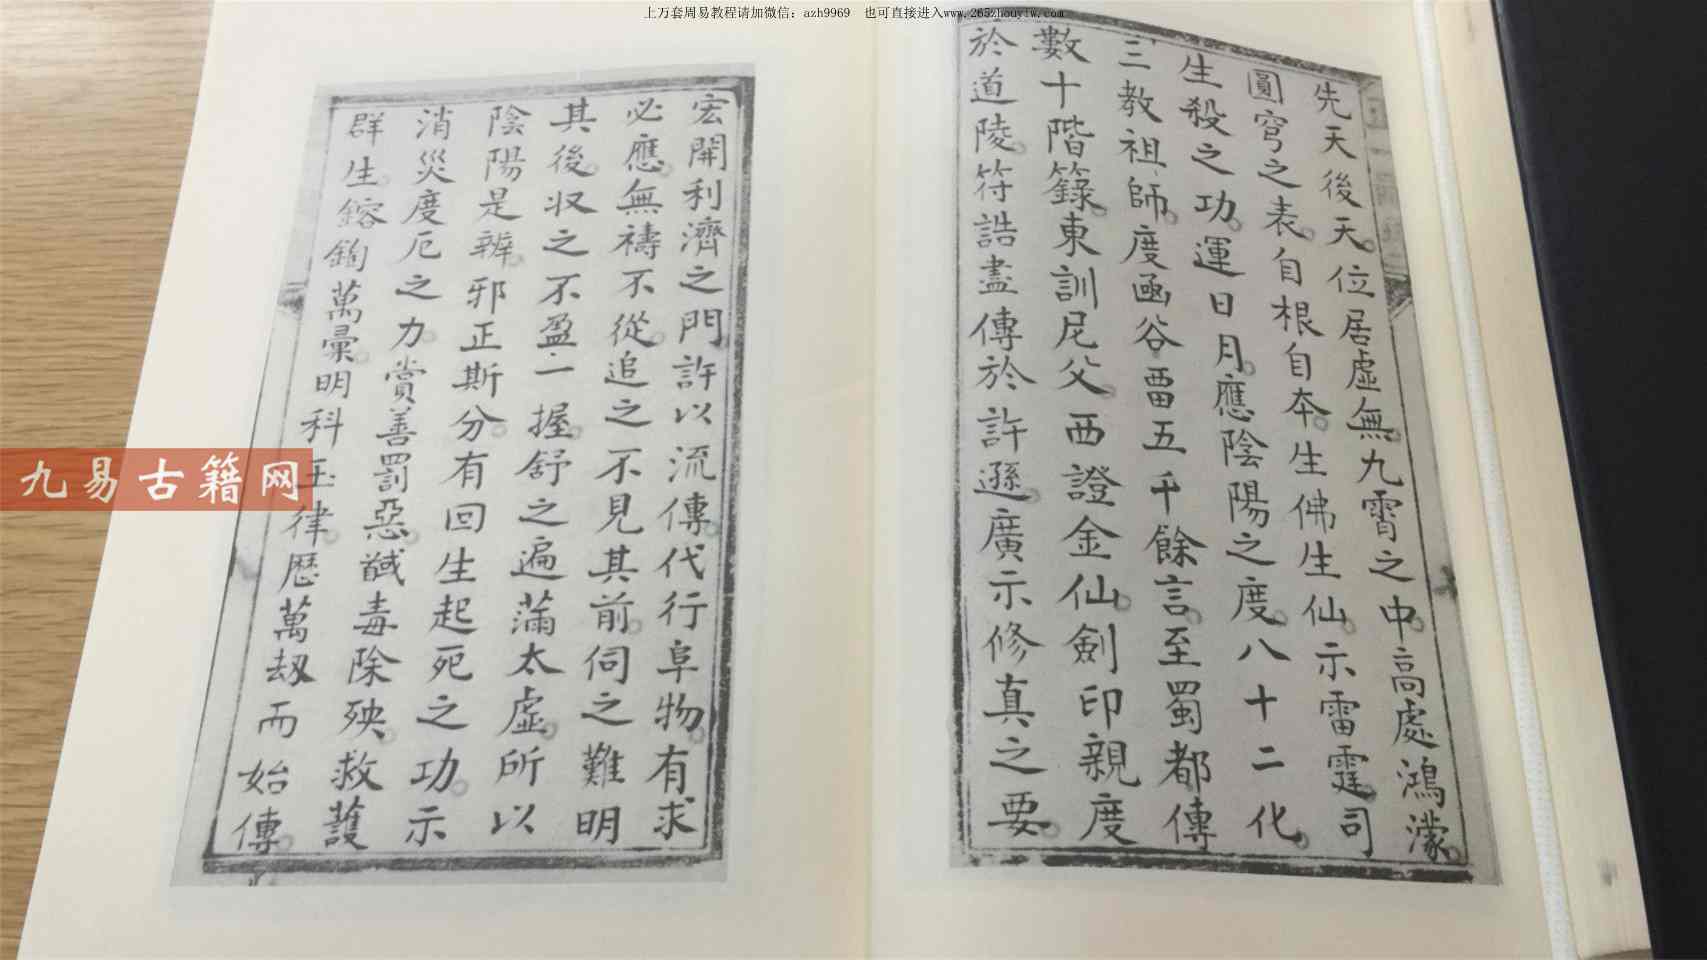 上万套周易教程请加微信：azh9969 也可直接进入www.265zhouyiw.com
先天後天位居虛無九霄之中高處鴻濛
圓穹之表自根自本生佛生仙示雷霆司
生殺之功運日月應陰陽之度八十二化
三教祖師度函谷畱五千餘言至蜀都傳
數十階籙東訓尼父西證金仙劍印親度
於道陵符誥盡傳於許遜廣示修真之要
宏開利濟之門許以流傳代行阜物有求
必應無禱不從追之不見其前伺之難明
其後收之不盈一握舒之遍滿太虛所以
陰陽是辨邪正斯分有回生起死之功示
消災度厄之力賞善罰惡馘毒除殃救護
群生鎔鈞萬彙明科玉律歷萬刼而始傳
九易古籍网